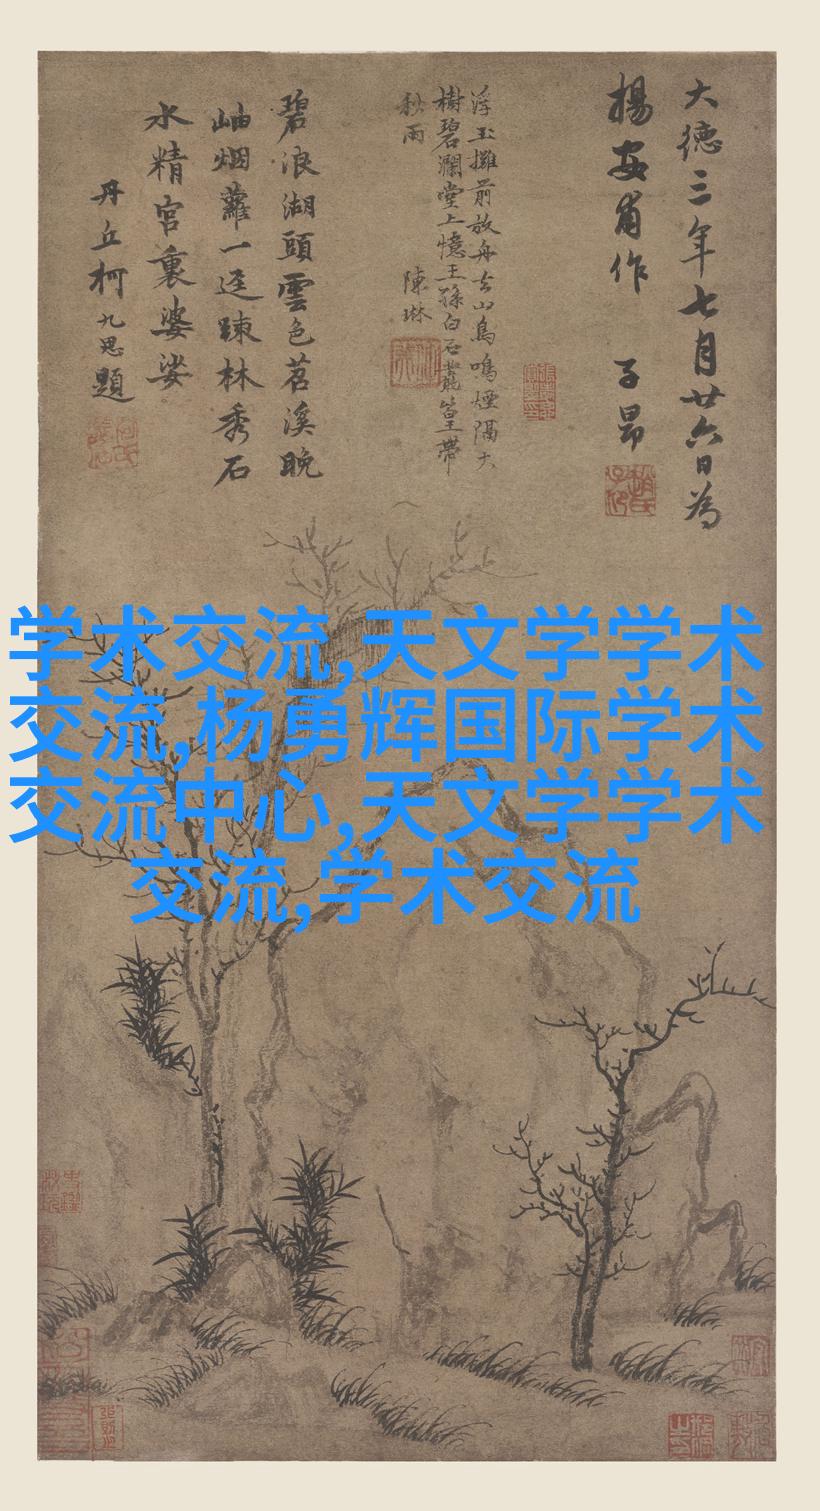 大德三年七月廿六日為
楊安甫作 子昂
浮玉攤前放舟去山鳥鳴煙隔大
樹碧瀾堂上憶王孫白石叢篁帶
秋雨 陳琳
碧浪湖頭雲色苕溪晚
岫烟蘿一逕踈林秀石
水精宮裏婆娑
丹丘柯九思題
学术交流,天文学学术
交流,杨勇辉国际学术
交流中心,天文学学术
交流,学术交流